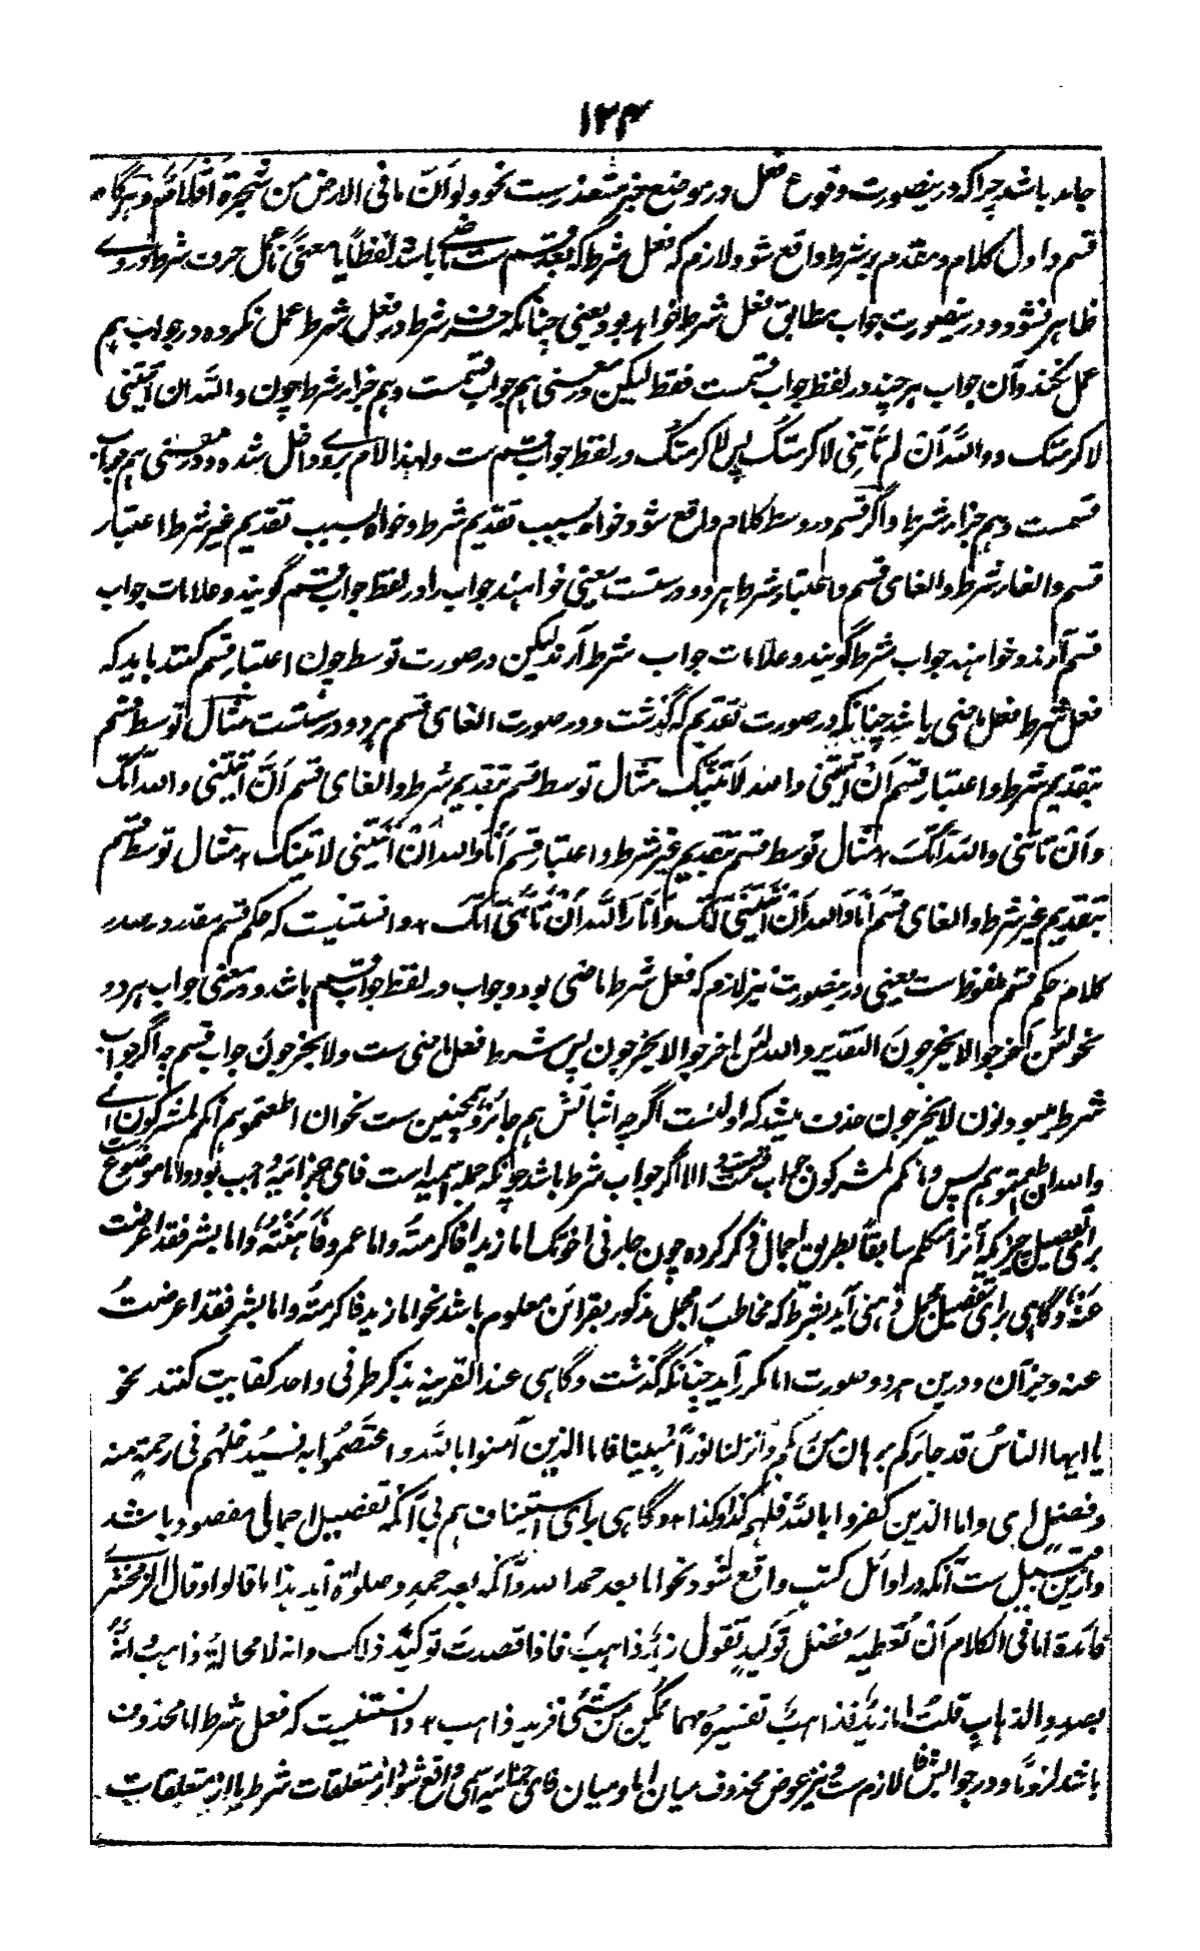 ۱۲۴
جامد باشد چرا که درینصورت وقوع فعل در موضع خبر متعذرست نحو ولو اَنَّ ما فی الارض من شجرةٍ اَقْلَامٌ و هرگاه
قسم در اول کلام و مقدم بر شرط واقع شود لازم که فعل شرط که بعد قسم ست ماضی باشد لفظاً یا معنیً تا عمل حرف شرط در وے
ظاهر نشود و درینصورت جواب مطابق فعل شرط خواهد بود یعنی چنانکه حرف شرط در فعل شرط عمل نکرده در جواب هم
عمل نکند و آن جواب هرچند در لفظ جواب قسمست فقط لیکن در معنی هم جواب قسمست و هم جزاء شرط چون واللّه ان اتیتنی
لاکرمتک و واللّه اِنْ لم تاتِنِی لاکرمتک پس لاکرمتک در لفظ جواب قسم ست ولهذا لام بر وے داخل شده و در معنی هم جواب
قسمست و هم جزاء شرط و اگر قسم در وسط کلام واقع شود خواه بسبب تقدیم شرط و خواه بسبب تقدیم غیر شرط اعتبار
قسم و الغاء شرط و الغای قسم و اعتبار شرط هر دو درستست یعنی خواهند جواب را در لفظ جواب قسم گویند و علامات جواب
قسم آرند و خواهند جواب شرط گویند و علامات جواب شرط آرند لیکن در صورت توسط چون اعتبار قسم کنند باید که
فعل شرط فعل ماضی باشد چنانکه در صورت تقدیم که گذشت و در صورت الغای قسم هر دو درستست مثال توسط قسم
بتقدیم شرط و اعتبار قسم اِنْ اَتیتَنی واللّه لَاٰتینّک مثال توسط قسم بتقدیم شرط و الغای قسم اِنْ اَتیتَنی واللّه اٰتِک
و اِنْ تاتنی واللّه اٰتِکَ ۱۲ مثال توسط قسم بتقدیم غیر شرط و اعتبار قسم اَنَا واللّه اِنْ اَتیتنی لاٰتینک ۱۲ مثال توسط قسم
بتقدیم غیر شرط و الغای قسم اَنا واللّه اِنْ اَتَیْتَنِی اٰتِک و اَنَا واللّه اِنْ تاتِنی اٰتِک ۱۲ و دانستنیست که حکم قسم مقدر در صدر
کلام حکم قسم ملفوظ ست یعنی درینصورت نیز لازم که فعل شرط ماضی بود و جواب در لفظ جواب قسم باشد و در معنی جواب هر دو
نحو لئن اُخرجوا لا یخرجون التقدیر واللّه لئن اخرجوا لا یخرجون پس شرط فعل ماضی ست و لا یخرجون جواب قسم چه اگر جواب
شرط میبود نون لا یخرجون حذف میشد که اولیٰست اگرچه اثباتش هم جائز و همچنین ست نحو ان اطعتموهم انکم لمشرکون اے
واللّه ان اطعتموهم پس انکم لمشرکون جواب قسمست والا اگر جواب شرط باشد چونکه جمله اسمیه است فای جزائیه واجب بود و اما موضوع ست
برای تفصیل چیزیکه آنرا متکلم سابقاً بطریق اجمال ذکر کرده چون جاءنی اخوتک اما زید فاکرمته و اما عمرو فاَهَنْتُهٗ و اما بشر فقد اعرضت
عنه و گاهی برای تفصیل مجمل ذهنی آید بشرطیکه مخاطب را مجمل مذکور بقرائن معلوم باشد نحو اما زید فاکرمته و اما بشر فقد اعرضتُ
عنه و جز آن و درین هر دو صورت اما مکرر آید چنانکه گذشت و گاهی عند القرینه بذکر طرفی واحد کفایت کنند نحو
یا ایها الناس قد جاءکم برهان من ربکم و انزلنا الیکم نوراً مبینا فاما الذین آمنوا باللّه و اعتصموا به فسیدخلهم فی رحمة منه
و فضل ای و اما الذین کفروا باللّه فلهم کذا و کذا ۱۲ و گاهی برای استیناف هم بی آنکه تفصیل اجمالی مقصود باشد
و ازین قبیل ست آنکه در اوائل کتب واقع شود نحو اما بعد حمد اللّه و آنکه بعد حمد و صلوة آید هذا ما قالوا و قال الزمخشری
فائدة اما فی الکلام اَنْ تُعْطِیَه فضل توکیدٍ تقول زیدٌ ذاهبٌ فاذا قصدت توکید ذلک و انه لا محالة ذاهب و انّه
بصدد الذهاب قلت اما زیدٌ فذاهبٌ تفسیره مهما یکن من شئ فزید ذاهب ۱۲ و دانستنیست که فعل شرط اما محذوف
باشد لزوماً و در جوابش فا لازم ست و نیز عوض محذوف میان اما و میان فای جزائیه اسمی واقع شود از متعلقات شرط یا از متعلقات